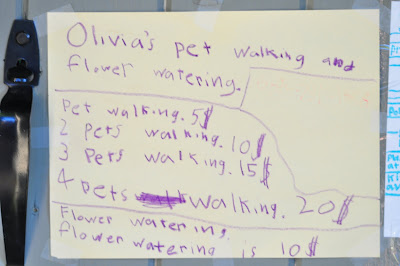 Olivia's pet walking and
flower watering.
Pet walking. 5$
2 pets walking. 10$
3 pets walking. 15$
4 pets walking. 20$
Flower watering.
flower watering is 10$